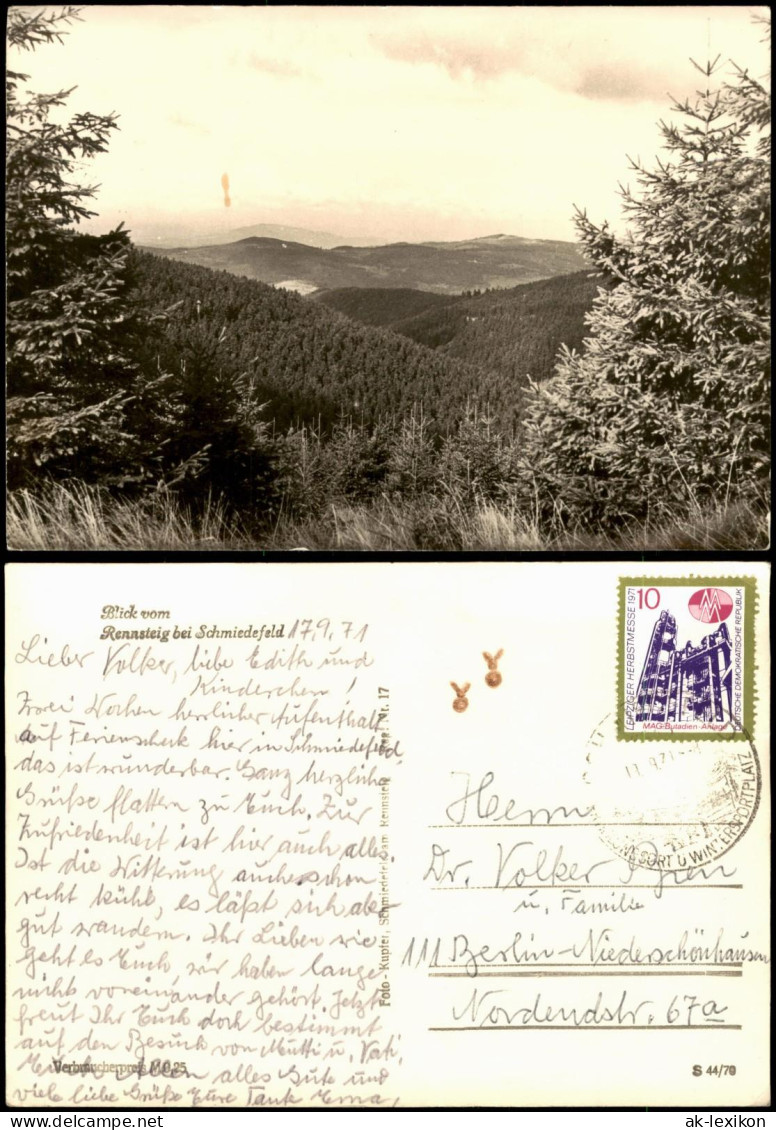 Blick vom
Rennsteig bei Schmiedefeld 17.9.71
Lieber Volker, liebe Edith und
Kinderchen!
Zwei Wochen herrlicher Aufenthalt
auf Ferienscheck hier in Schmiedefeld,
das ist wunderbar. Ganz herzliche
Grüße flattern zu Euch. Zur
Zufriedenheit ist hier auch alles.
Ist die Witterung auch schon
recht kühl, es läßt sich aber
gut wandern. Ihr Lieben wie
geht es Euch, wir haben lange
nichts voneinander gehört. Jetzt
freut Ihr Euch doch bestimmt
auf den Besuch von Mutti u. Vati.
Euch allen alles Gute und
viele liebe Grüße Eure Tante Erna.
Verbraucherpreis M 0,25
Foto-Kupfer, Schmiedefeld am Rennsteig
Nr. 17
10
LEIPZIGER HERBSTMESSE 1971
DEUTSCHE DEMOKRATISCHE REPUBLIK
MAG-Butadien-Anlage
U WINTERSPORTPLATZ
Herrn
Dr. Volker
u. Familie
111 Berlin-Niederschönhausen
Nordendstr. 67a
S 44/70
ak-lexikon